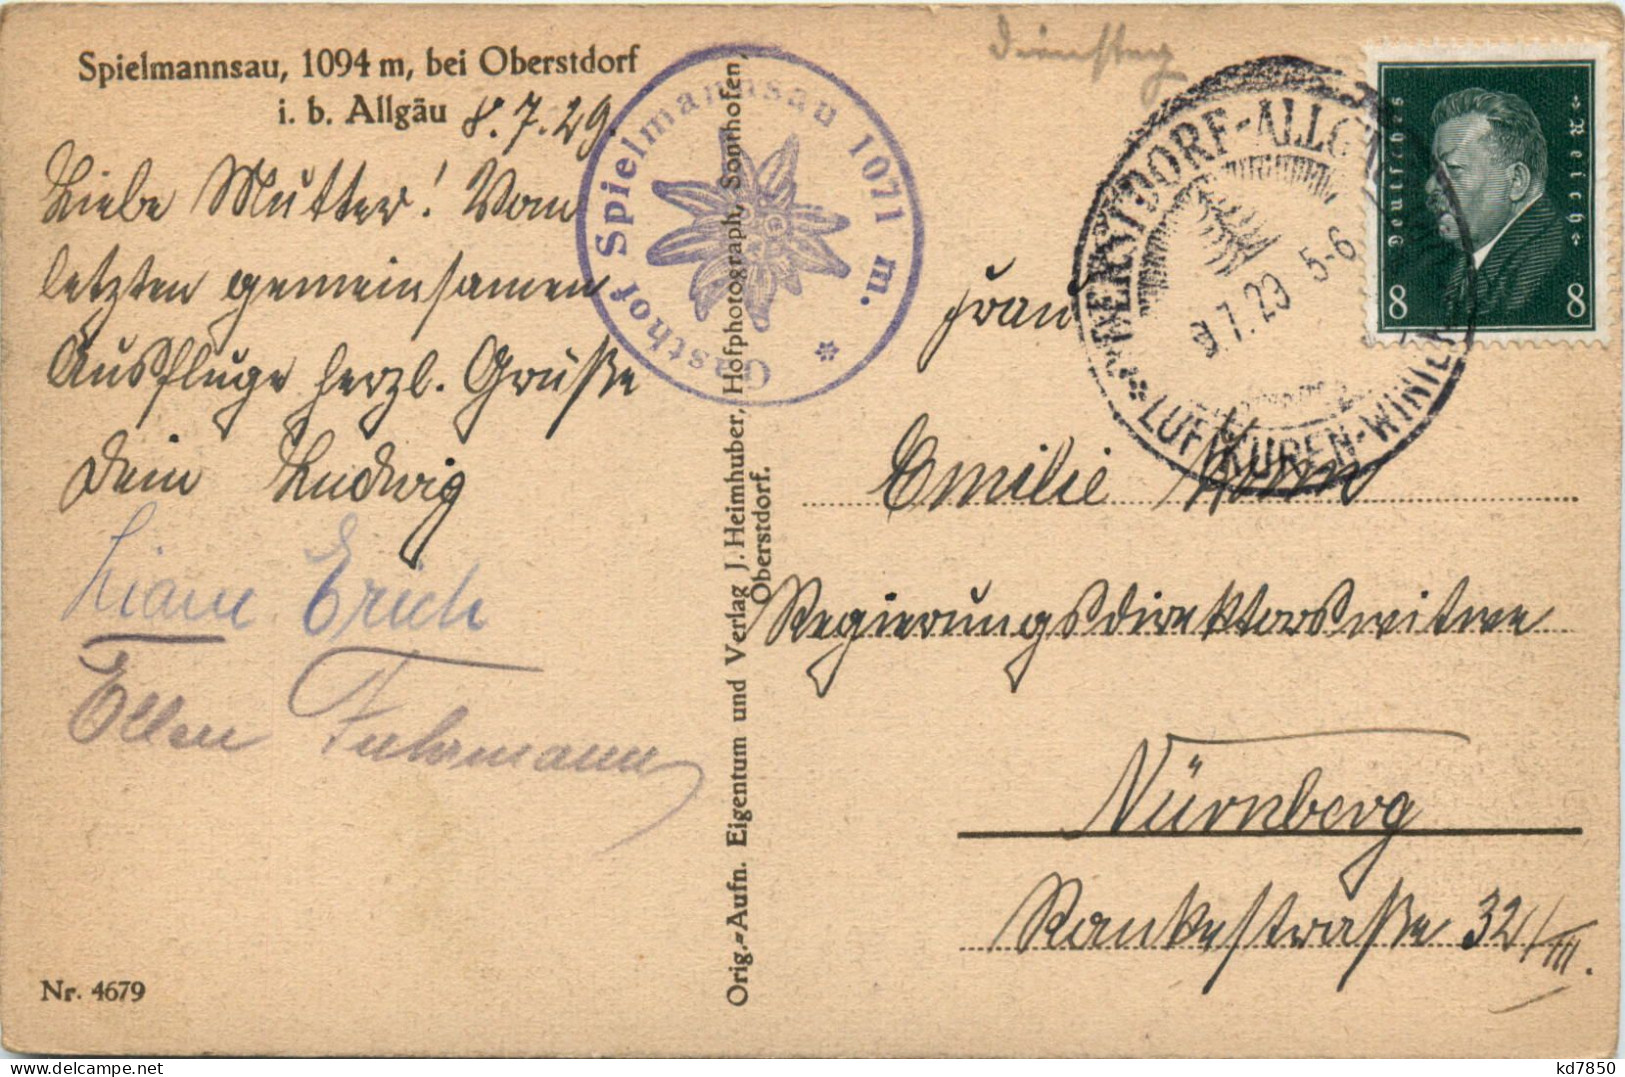 Spielmannsau, 1094 m, bei Oberstdorf
i. b. Allgäu 8.7.29.
Liebe Mutter! Vom
letzten gemeinsamen
Ausfluge herzl. Grüße
Dein Ludwig
Liane Erich
Ellen Fuhrmann
Nr. 4679
Gasthof Spielmannsau 1071 m.
Orig.-Aufn. Eigentum und Verlag J. Heimhuber, Hofphotograph, Sonthofen,
Oberstdorf.
Dienstag
OBERSTDORF-ALLGÄU
9.7.29 5-6
LUFTKUREN-WINTER
Deutsches Reich
8 8
Frau
Emilie Horn
Regierungsdirektorswitwe
Nürnberg
Rankestraße 32/III.
www.delcampe.net
kd7850